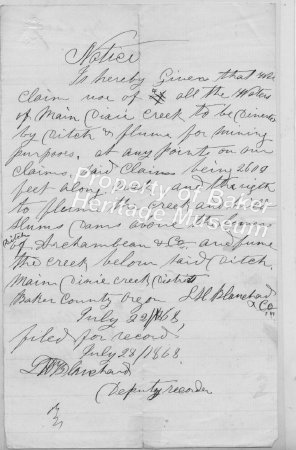 Notice
Is hereby Given that we
claim use of all the Waters
of Main Dixie creek to be Diverted
by Ditch & flume for mining
purposes. at any point on our
claims. Said Claims being 2600
feet along creek and the right
to flume the creek and
flums dams above the
Ditches of Archambeau & Co. and flume
the creek below said Ditch.
Main Dixie creek District
Baker County Oregon L M Blanchard
& Co
July 22/1868
filed for record
July 23/1868
L M Blanchard
Deputy recorder
Property of Baker
Heritage Museum